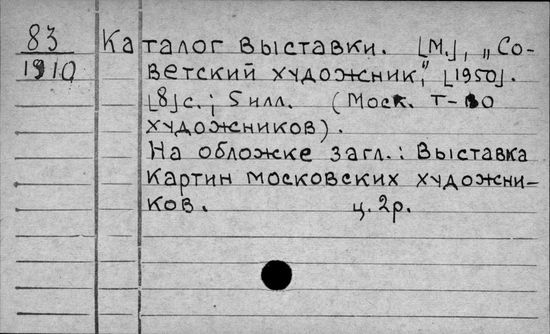 83 Каталог выставки. [М.], „Со-
1910 ветский художник", [1950].
[8]с.; 5 илл. (Моск. т-во
художников).
На обложке загл.: Выставка
картин московских художни-
ков. ц. 2р.